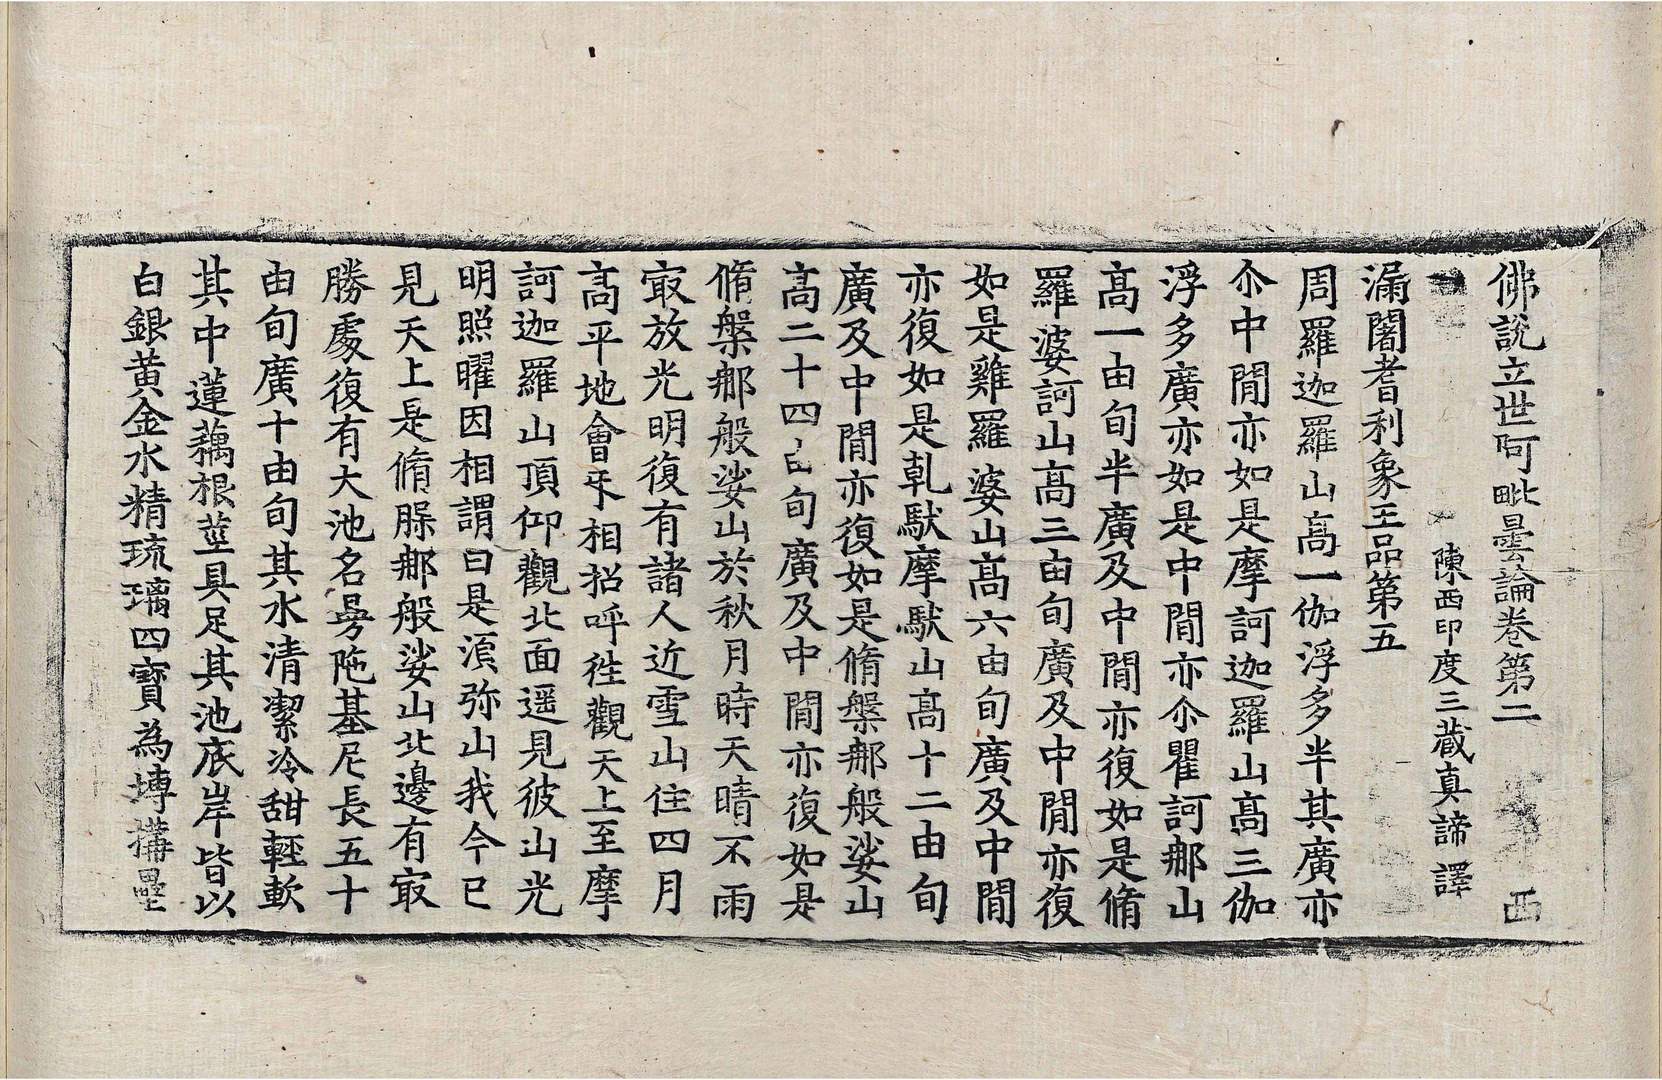 佛説立世阿毗曇論卷第二 西
陳西印度三藏真諦譯
漏闍耆利象王品第五
周羅迦羅山高一伽浮多半其廣亦
尒中閒亦如是摩訶迦羅山高三伽
浮多廣亦如是中閒亦尒瞿訶䣕山
高一由旬半廣及中閒亦復如是脩
羅婆訶山高三由旬廣及中閒亦復
如是雞羅婆山高六由旬廣及中閒
亦復如是乹馱摩馱山高十二由旬
廣及中閒亦復如是脩槃䣕般娑山
高二十四由旬廣及中閒亦復如是
脩槃䣕般娑山於秋月時天晴不雨
㝡放光明復有諸人近雪山住四月
高平地會㸦相招呼徃觀天上至摩
訶迦羅山頂仰觀北面遥見彼山光
明照曜因相謂曰是湏弥山我今已
見天上是脩䐗䣕般娑山北邊有㝡
勝處復有大池名曼陁基尼長五十
由旬廣十由旬其水清潔冷甜輕軟
其中蓮藕根莖具足其池底岸皆以
白銀黄金水精琉璃四寶為塼搆壘